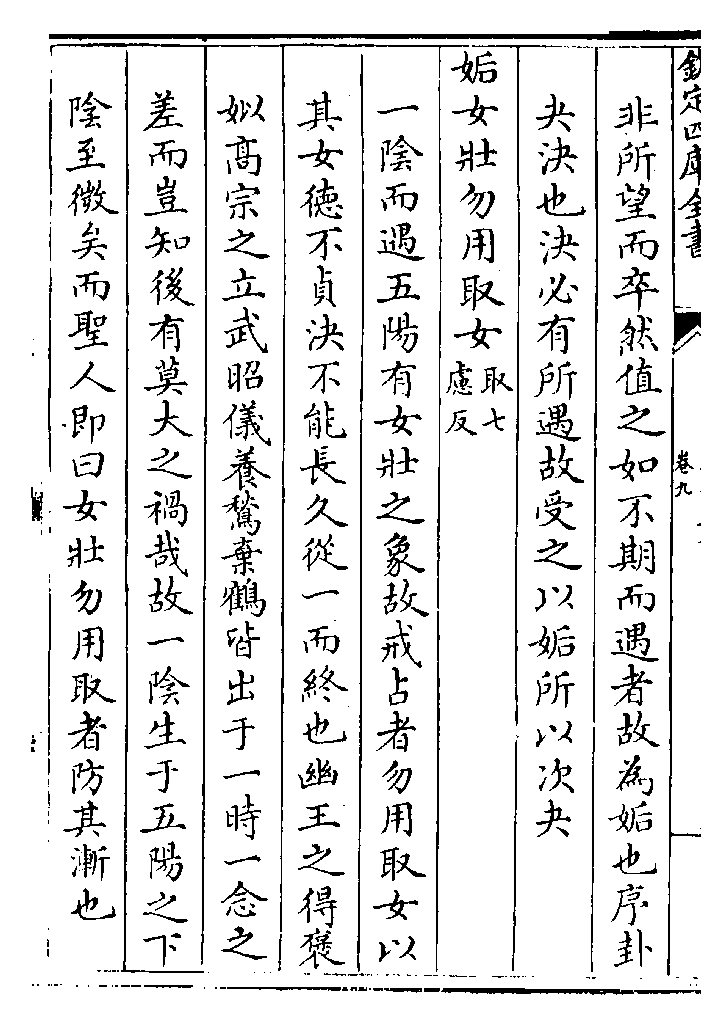 欽定四庫全書
卷九
非所望而卒然值之如不期而遇者故為姤也序卦
夬決也決必有所遇故受之以姤所以次夬
姤女壯勿用取女取七慮反
一陰而遇五陽有女壯之象故戒占者勿用取女以
其女德不貞決不能長久從一而終也幽王之得褒
姒高宗之立武昭儀養鶖棄鶴皆出于一時一念之
差而豈知後有莫大之禍哉故一陰生于五陽之下
陰至微矣而聖人即曰女壯勿用取者防其漸也